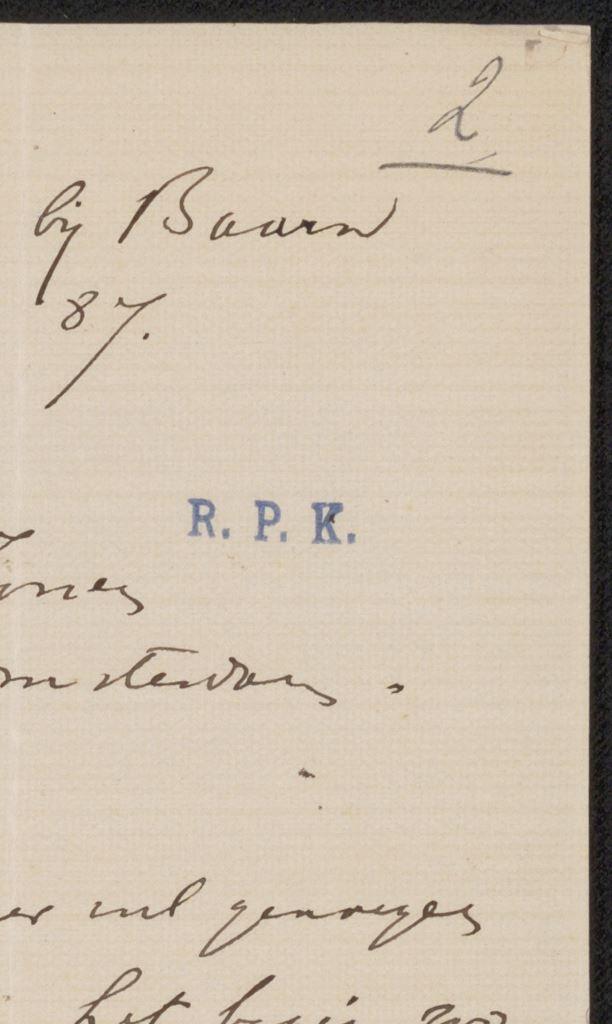 2
bij Baarn
87.
R. P. K.
msterdam.
er met genoegen
het